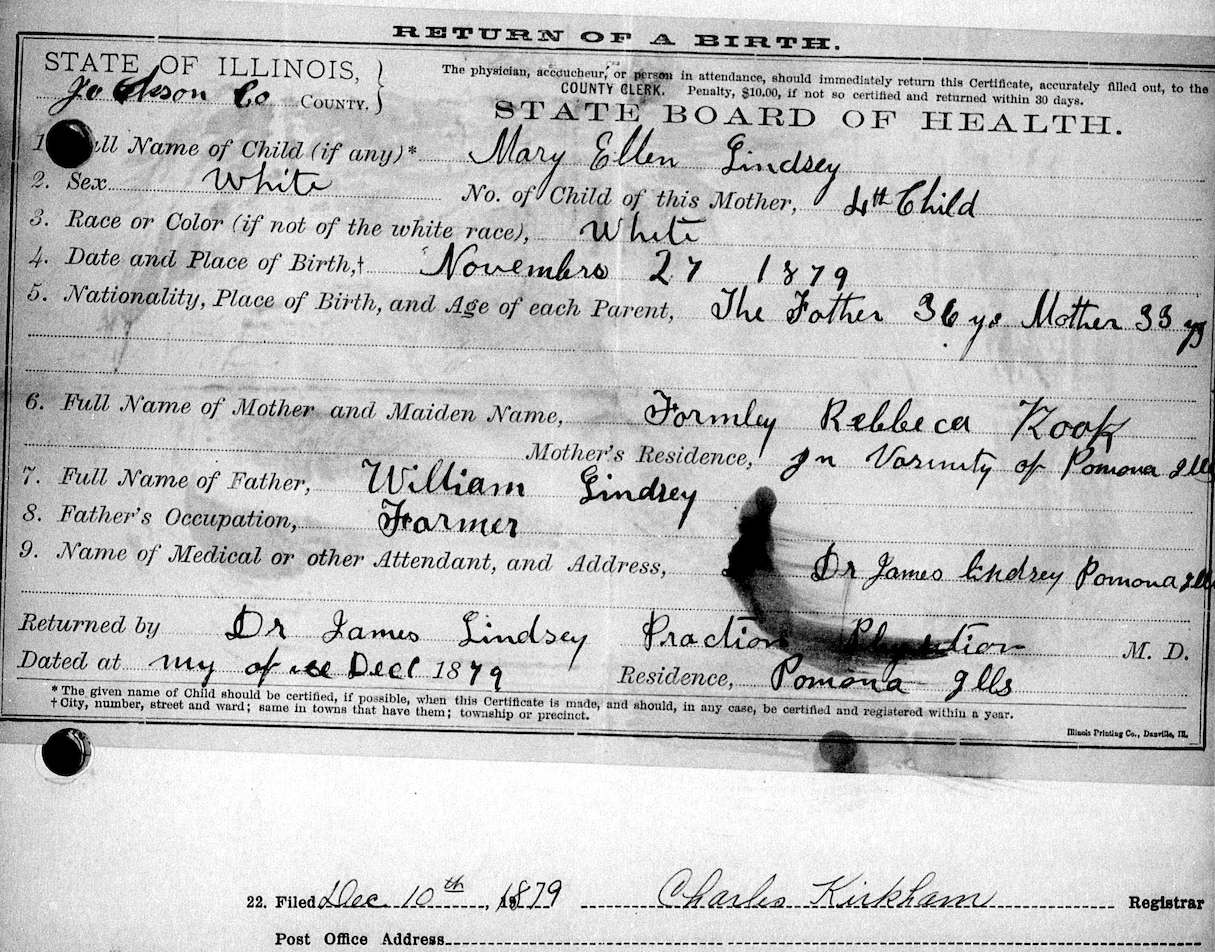 RETURN OF A BIRTH.
STATE OF ILLINOIS,
Jackson Co COUNTY.
The physician, accoucheur, or person in attendance, should immediately return this Certificate, accurately filled out, to the
COUNTY CLERK. Penalty, $10.00, if not so certified and returned within 30 days.
STATE BOARD OF HEALTH.
1 ull Name of Child (if any)* Mary Ellen Lindsey
2. Sex White No. of Child of this Mother, 4th Child
3. Race or Color (if not of the white race), White
4. Date and Place of Birth,† Novembro 27 1879
5. Nationality, Place of Birth, and Age of each Parent, The Father 36 ys Mother 33 ys
6. Full Name of Mother and Maiden Name, Formley Rebbeca Kook
Mother's Residence, In Varinity of Pomona Ills
7. Full Name of Father, William Lindsey
8. Father's Occupation, Farmer
9. Name of Medical or other Attendant, and Address, Dr James Lindsey Pomona Ills
Returned by Dr James Lindsey Praction M. D.
Dated at my Dec 1 1879 Residence, Pomona Ills
* The given name of Child should be certified, if possible, when this Certificate is made, and should, in any case, be certified and registered within a year.
† City, number, street and ward; same in towns that have them; township or precinct.
Illinois Printing Co., Danville, Ill.
22. Filed Dec. 10th, 1879 Charles Kirkham Registrar
Post Office Address